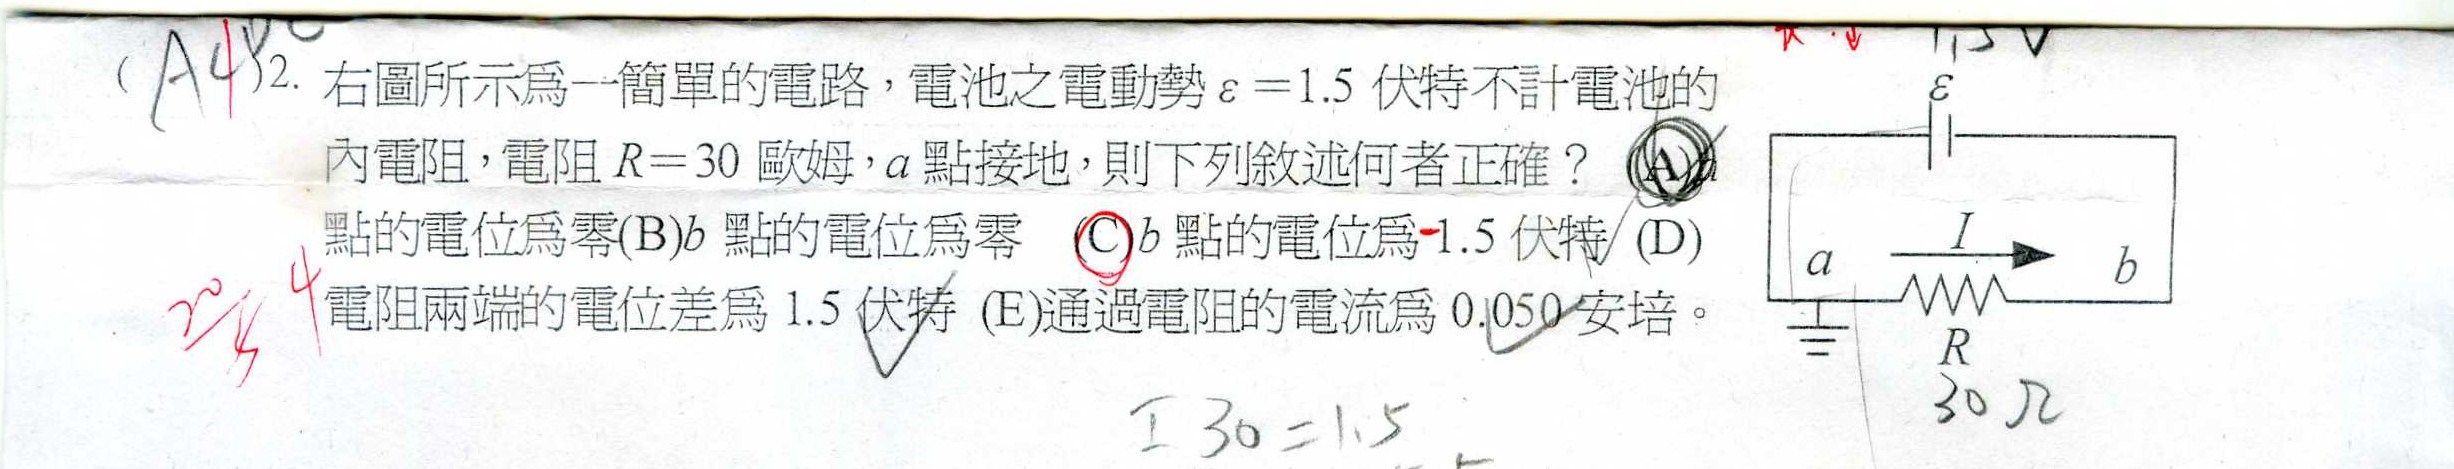 1.5 V
(A4)2. 右圖所示為一簡單的電路，電池之電動勢 ε＝1.5 伏特不計電池的
內電阻，電阻 R＝30 歐姆，a 點接地，則下列敘述何者正確？ (A)a
點的電位為零(B)b 點的電位為零 (C)b 點的電位為-1.5 伏特 (D)
電阻兩端的電位差為 1.5 伏特 (E)通過電阻的電流為 0.050 安培。
ε
I
a
b
R
30 Ω
I 30 = 1.5